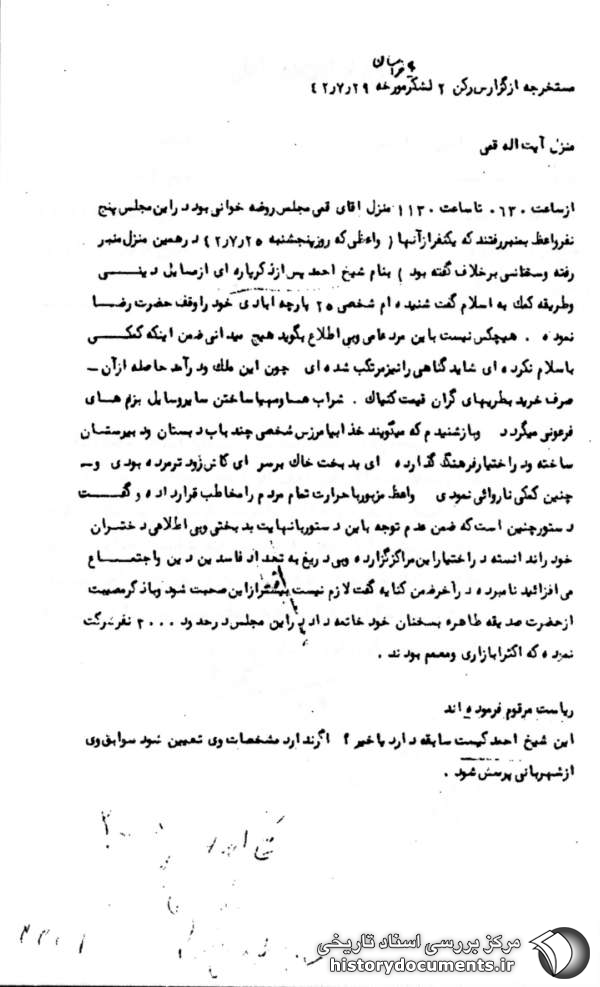 خراسان
مستخرجه ازگزارس رکن ۲ لشگر مورخه ۴۲٫۷٫۲۹
منزل آیت اله قمی
ازساعت ۰۶۳۰ تاساعت ۱۱۳۰ منزل اقای قمی مجلس روضه خوانی بود دراین مجلس پنج
نفرواعظ بمنبررفتند که یکنفرازآنها ( واعظی که روزپنجشنبه ۴۲٫۷٫۲۵ درهمین منزل منبر
رفته وسخنانسی برخلاف گفته بود ) بنام شیخ احمد پس ازذکرپاره ای ازمسایل دینــی
وطریقه کمك به اسلام گفت شنیده ام شخصی ۲۵ پارچه ابادی خود راوقف حضرت رضـا
نموده . هیچکس نیست باین مردعامی وبی اطلاع بگوید هیچ میدانی ضمن اینکه کمکــی
باسلام نکرده ای شاید گناهی رانیزمرتکب شده ای چون این ملك ودرآمد حاصله ازآن –
صرف خرید بطریهای گران قیمت کنیاك . شراب هاومهیاساختن سایروسایل بزم های
فرعونی میگردد وبازشنیدم که میگویند خدابیامرزس شخصی چند باب دبستان ودبیرستان
ساخته ودراختیارفرهنگ گذارده ای بدبخت خاك برسر ای کاش زودترمرده بودی و–
چنین کمکی ناروائی نمودی واعظ مزبورباحرارت تمام مردم رامخاطب قرارداده وگفــت
دستورچنین است که ضمن عدم توجه باین دستوربانهایت بدبختی وبی اطلاعی دختـران
خود راندانسته دراختیاراین مراکزگزارده وبی دریغ به تعداد فاسدین دین واجتمــاع
می افزائید نامبرده درآخرضمن کنایه گفت لازم نیست بیشترازاین صحبت شود وباذکرمصیبت
ازحضرت صدیقه طاهره بسخنان خود خاتمه داد دراین مجلس درحدود ۲۰۰۰ نفرشرکت
نموده که اکثرابازاری ومعمم بودند .
ریاست مرقوم فرموده اند
این شیخ احمد کیست سابقه دارد یاخیر ؟ اگرندارد مشخصات وی تعیین شود سوابق وی
ازشهربانی پرسش شود .
مرکز بررسی اسناد تاریخی
historydocuments.ir